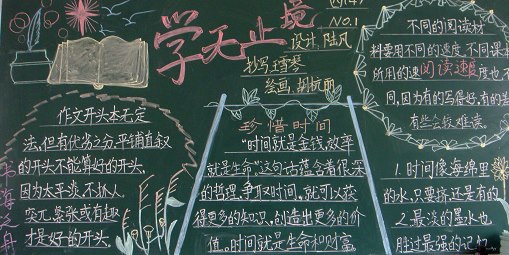 学无止境
NO.1
设计、陆凡
抄写、王雪琴
绘画、胡杭丽
作文开头本无定
法,但有优劣之分,平铺直叙
的开头不能算好的开头,
因为太平淡,不抓人,
突兀、紧张或有趣
才是好的开头.
书海之舟
珍惜时间
"时间就是金钱,效率
就是生命"这句话蕴含着很深
的哲理,争取时间,就可以获
得更多的知识,创造出更多的价
值。时间就是生命和财富.
不同的阅读材
料要用不同的速度,不同课本
所用的速 阅读速度 度也不
同,因为有的写得好,有的
有些会较难读.
1.时间像海绵里
的水,只要挤还是有的
2.最淡的墨水也
胜过最强的记忆.